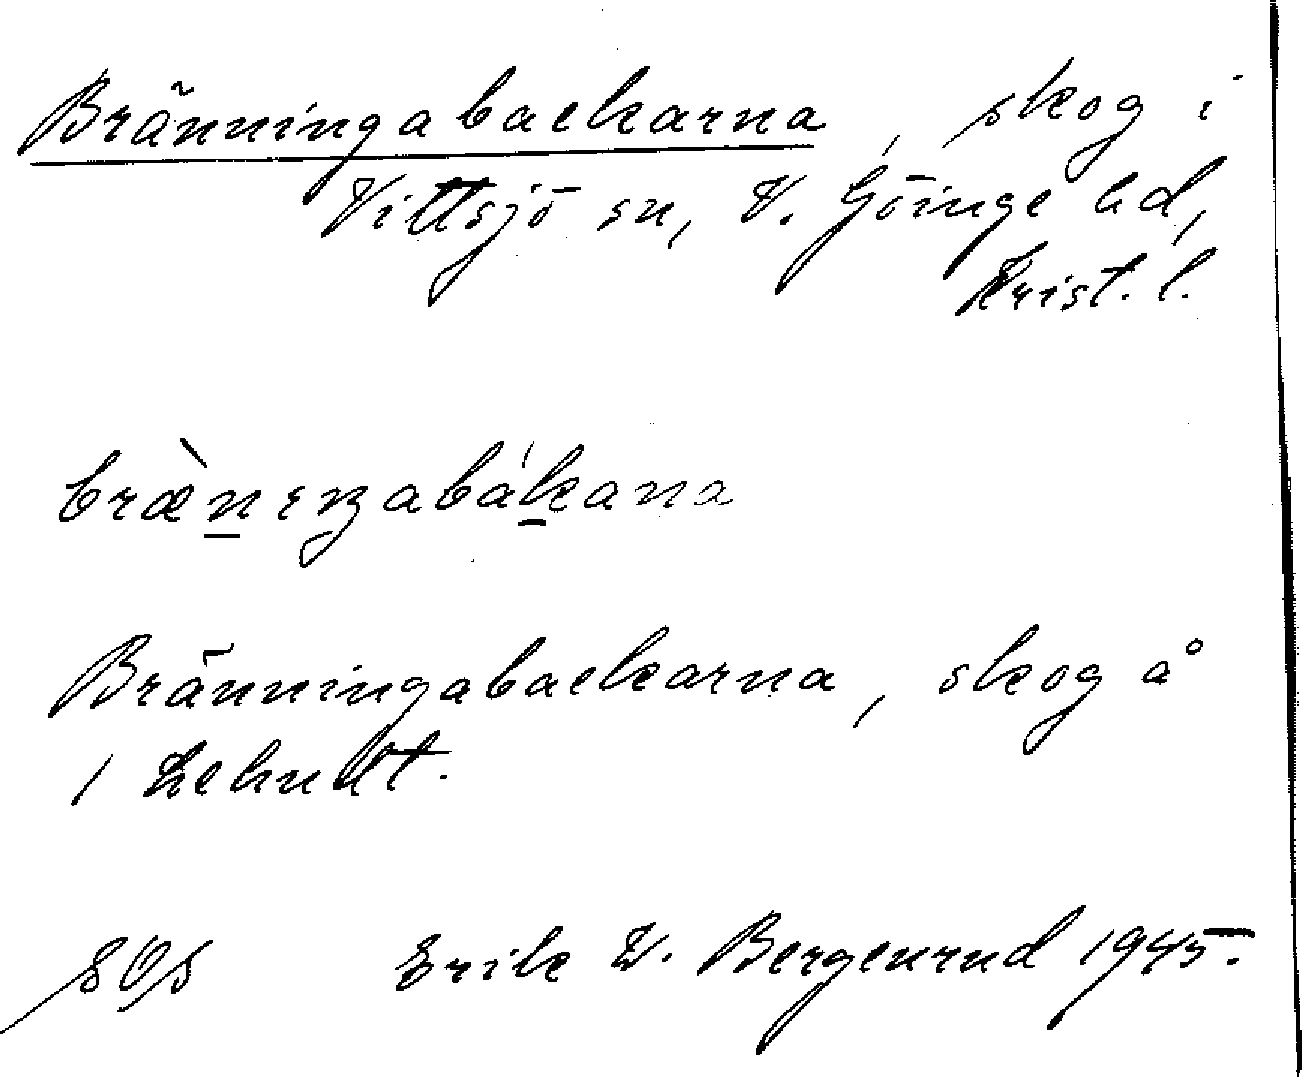 Bränningabackarna, skog i
Vittsjö sn, V. Göinge hd,
Krist. l.
bræ̀nıŋabákana
Bränningabackarna, skog å
1 Lehult.
SOS Erik W. Bergenrud 1945.